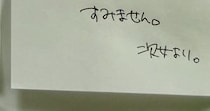 すみません。
次女より。